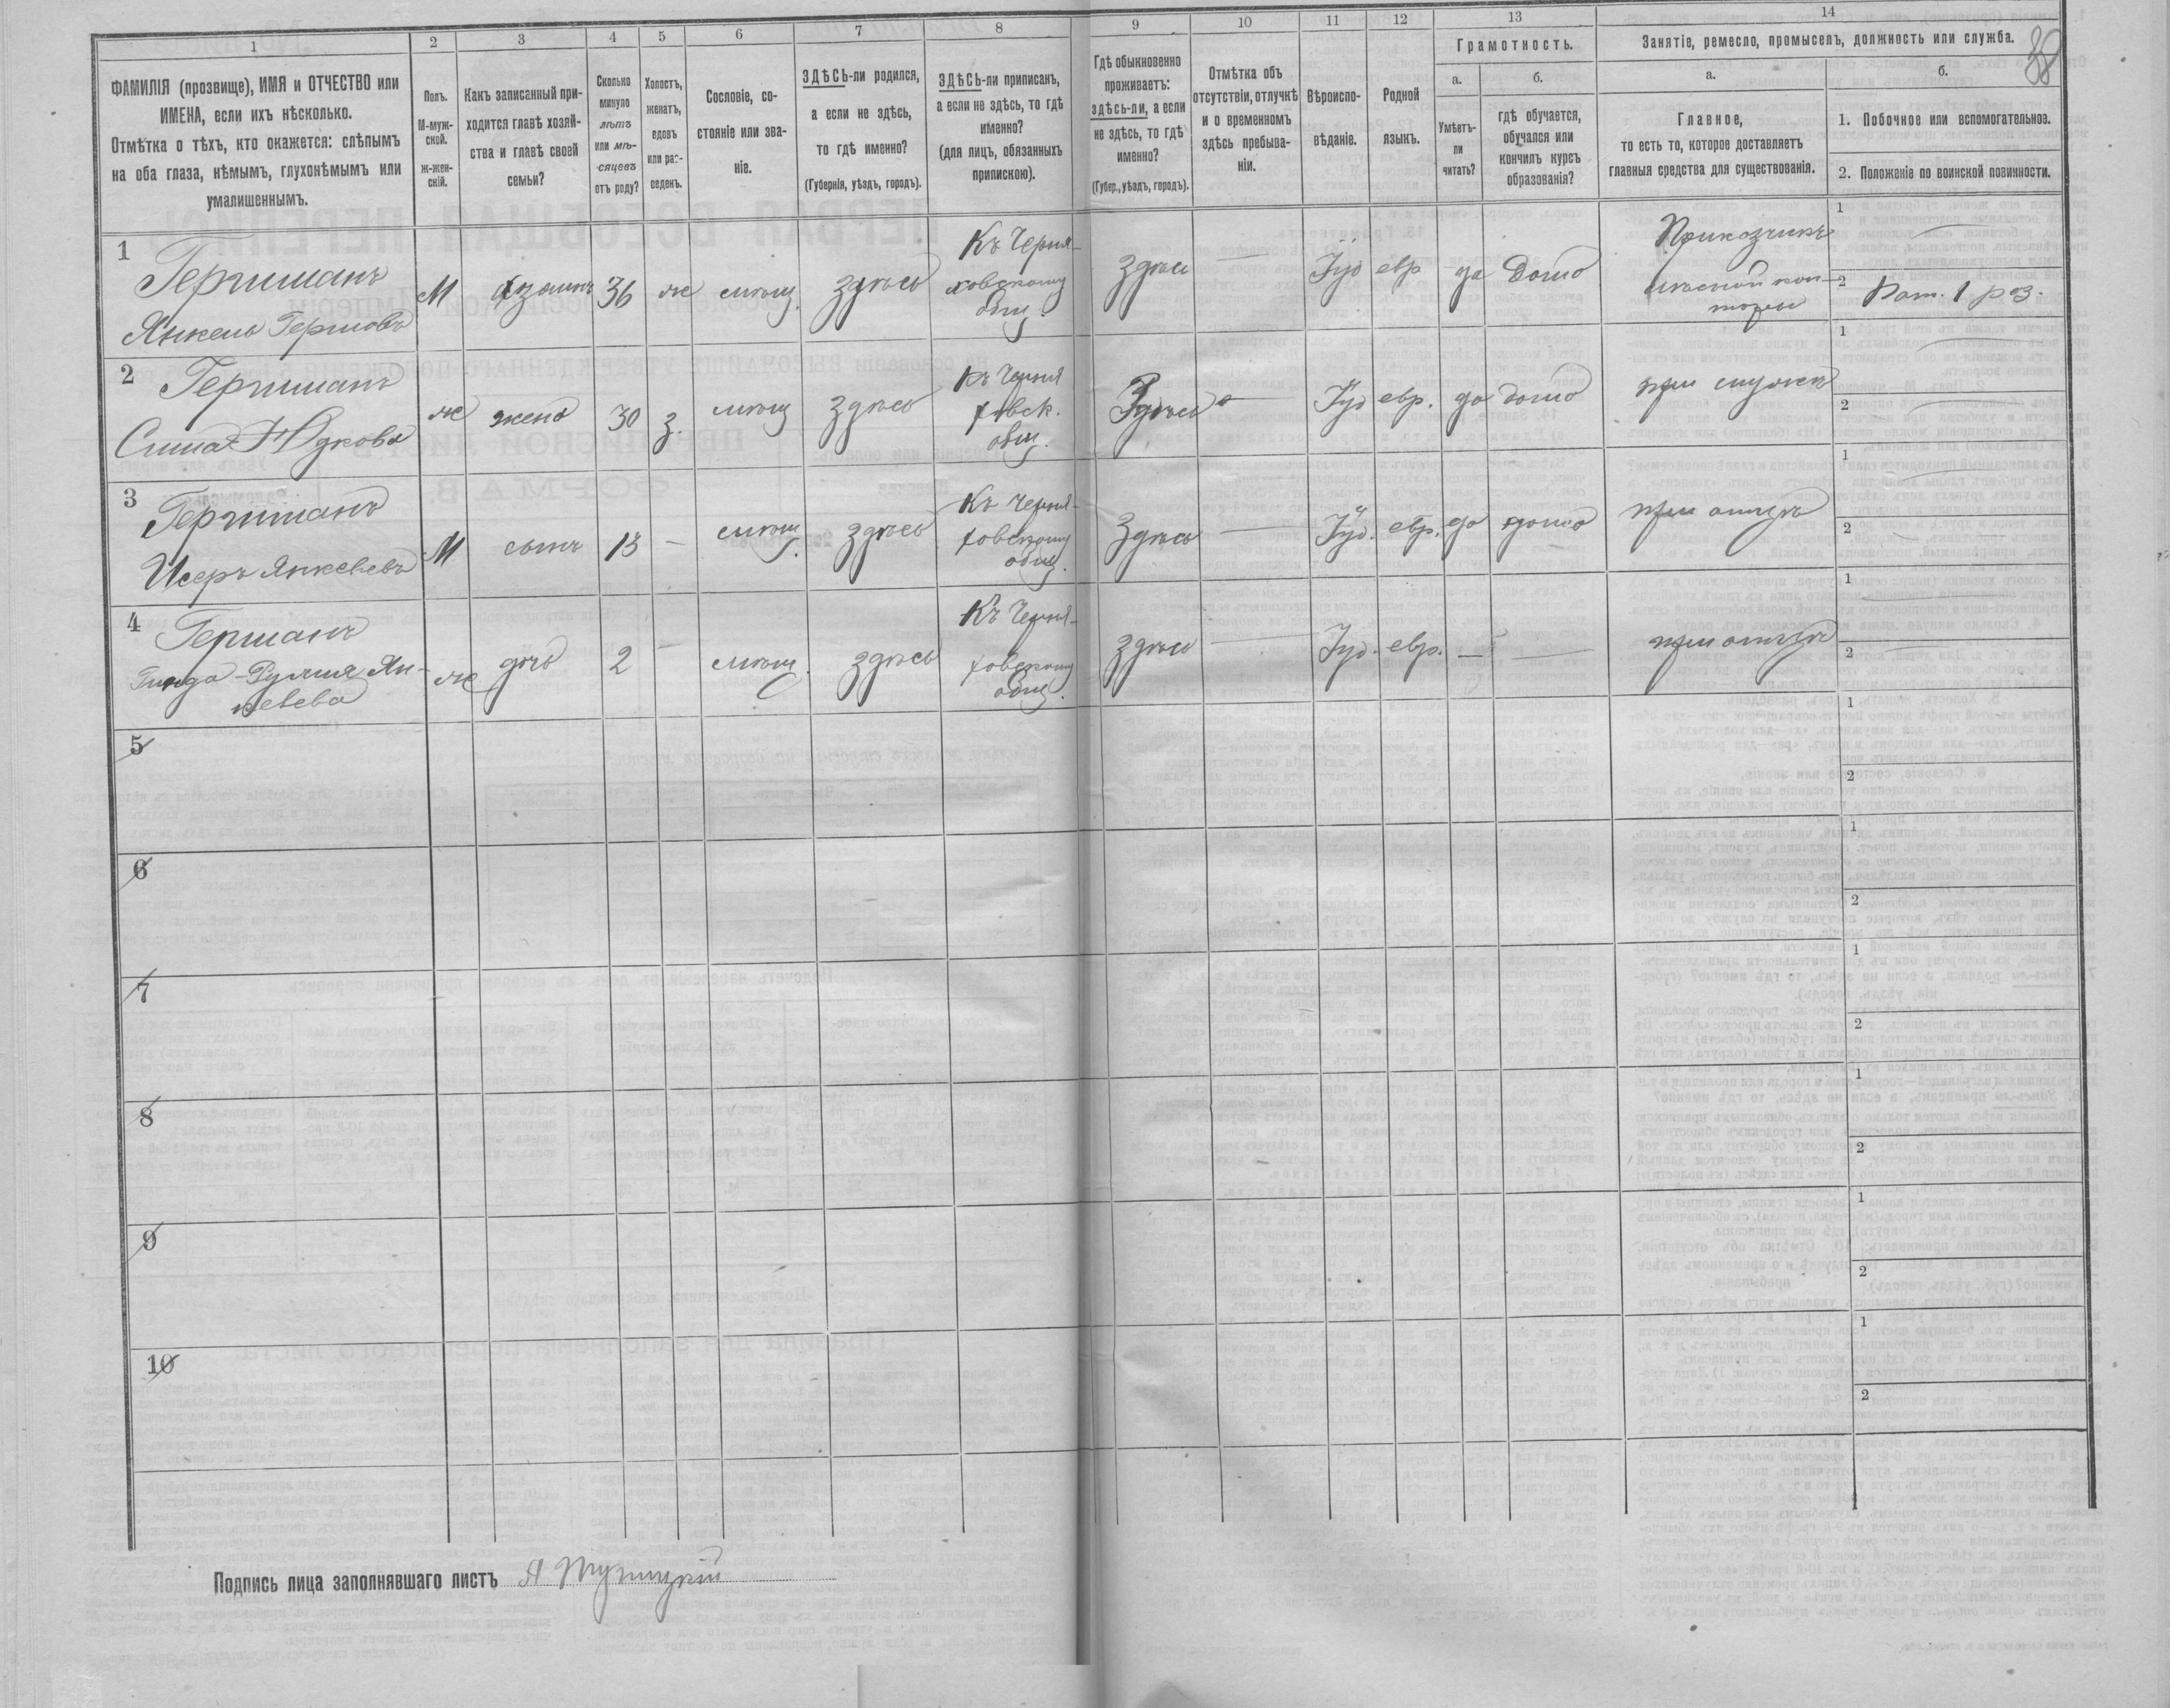 1 2 3 4 5 6 7 8 9 10 11 12 13 14
38
ФАМИЛІЯ (прозвище), ИМЯ и ОТЧЕСТВО или
ИМЕНА, если ихъ нѣсколько.
Отмѣтка о тѣхъ, кто окажется: слѣпымъ
на оба глаза, нѣмымъ, глухонѣмымъ или
умалишеннымъ.
Полъ.
М-муж-
ской.
Ж-жен-
скій.
Какъ записанный при-
ходится главѣ хозяй-
ства и главѣ своей
семьи?
Сколько
минуло
лѣтъ
или мѣ-
сяцевъ
отъ роду?
Холостъ,
женатъ,
вдовъ
или раз-
веденъ.
Сословіе, со-
стояніе или зва-
ніе.
ЗДѢСЬ-ли родился,
а если не здѣсь,
то гдѣ именно?
(Губернія, уѣздъ, городъ).
ЗДѢСЬ-ли приписанъ,
а если не здѣсь, то гдѣ
именно?
(для лицъ, обязанныхъ
припискою).
Гдѣ обыкновенно
проживаетъ:
здѣсь-ли, а если
не здѣсь, то гдѣ
именно?
(Губер., уѣздъ, городъ).
Отмѣтка объ
отсутствіи, отлучкѣ
и о временномъ
здѣсь пребыва-
ніи.
Вѣроиспо-
вѣданіе.
Родной
языкъ.
Грамотность.
а.
Умѣетъ-
ли
читать?
б.
гдѣ обучается,
обучался или
кончилъ курсъ
образованія?
Занятіе, ремесло, промыселъ, должность или служба.
а.
Главное,
то есть то, которое доставляетъ
главныя средства для существованія.
б.
1. Побочное или вспомогательное.
2. Положеніе по воинской повинности.
1
Герчиманъ
Янкель Гершовъ
М
хозяинъ
36
ж
мѣщ.
здѣсь
Къ Черня-
ховскому
общ.
здѣсь
—
Іуд
евр
да
дома
Приказчикъ
лѣсной кон-
торы
1 —
2 Рат. 1 раз.
2
Герчиманъ
Юдкова
ж
жена
30
з.
мѣщ
здѣсь
Къ Черня
ховск.
общ.
Здѣсь
—
Іуд
евр.
да
дома
при мужѣ
1 —
2 —
3
Герчиманъ
Исеръ Янкелевъ
М
сынъ
13
—
мѣщ.
здѣсь
Къ Черня-
ховскому
общ.
здѣсь
—
Іуд.
евр.
да
дома
при отцѣ
1 —
2 —
4
Германъ
Ян-
келева
ж
дчь
2
—
мѣщ.
здѣсь
Къ Черня-
ховскому
общ.
здѣсь
—
Іуд.
евр.
—
—
при отцѣ
1 —
2 —
5
1
2
6
1
2
7
1
2
8
1
2
9
1
2
10
1
2
Подпись лица заполнявшаго листъ